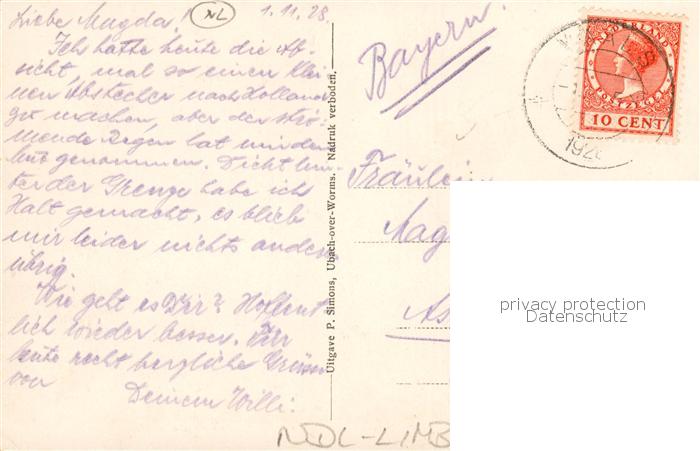 Liebe Magda! NL 1.11.28
Ich hatte heute die Ab-
sicht, mal so einen klei-
nen Abstecher nach Holland
zu machen, aber der strö-
mende Regen hat mir den
Mut genommen. Dicht hin-
ter der Grenze habe ich
Halt gemacht, es blieb
mir leider nichts anderes
übrig.
Wie geht es Dir? Hoffent
lich wieder besser. Für
heute recht herzliche Grüsse
von
Deinem Willi.
Uitgave P. Simons, Ubach-over-Worms. Nadruk verboden.
Bayern.
NEDERLAND
POSTZEGEL
10 CENT
1928
Fräulein
Mag
As
privacy protection
Datenschutz
NDL-LIMB